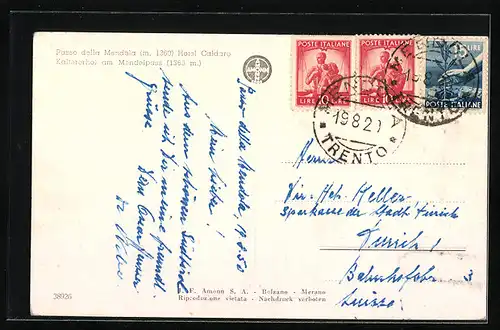 Passo della Mendola (m. 1363) Hotel Caldaro
Kalterer am Mendelpass (1363 m.)
Passo della Mendola, 19.8.50
Mein Lieber!
Aus dem schönen Südtirol
sende ich Dir meine freundl.
Grüsse
Dein
POSTE ITALIANE
POSTE ITALIANE
10 LIRE
LIRE
POSTE ITALIANE
19 8 2
TRENTO
Herrn
Dir. Hch. Keller,
Sparkasse der Stadt Zürich
Zürich 1
Bahnhofstr. 3
Suisse
F. Amonn S. A. - Bolzano - Merano
Riproduzione vietata - Nachdruck verboten
38926